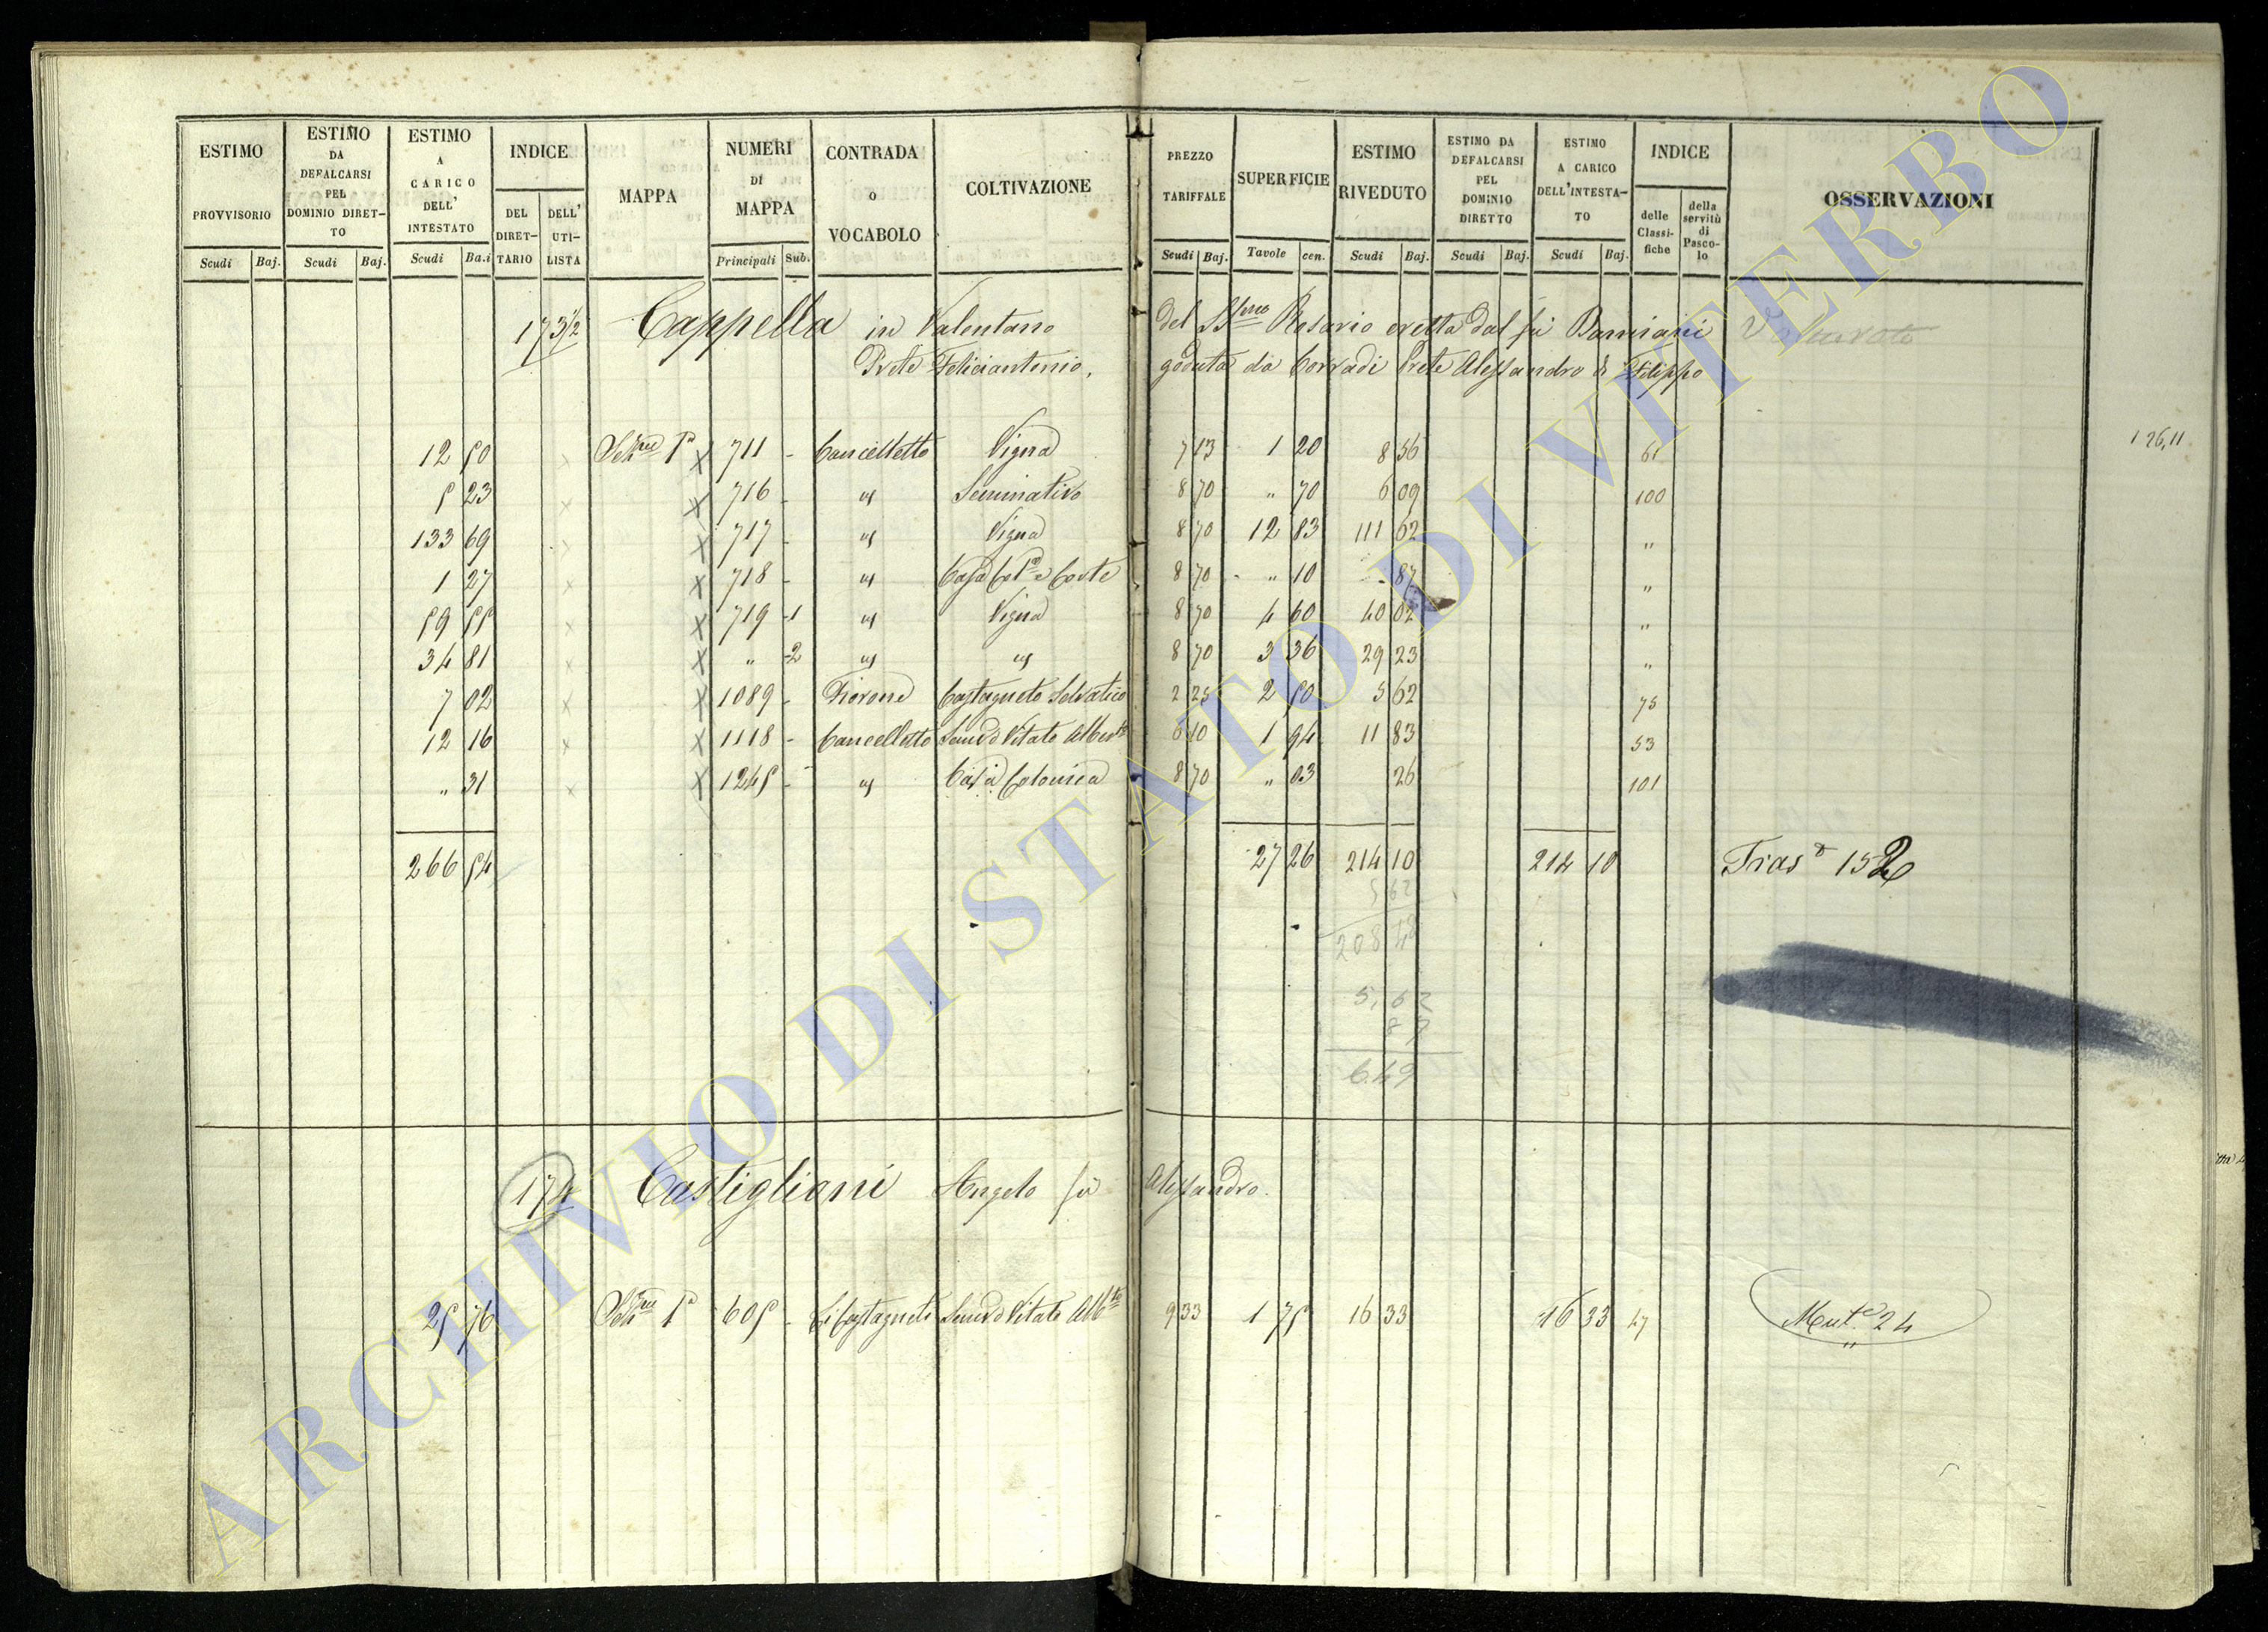 ESTIMO PROVVISORIO Scudi Baj.
ESTIMO DA DEFALCARSI PEL DOMINIO DIRET- TO Scudi Baj.
ESTIMO A CARICO DELL' INTESTATO Scudi Ba.i
INDICE DEL DIRET- TARIO DELL' UTI- LISTA
MAPPA
NUMERI DI MAPPA Principali Sub.
CONTRADA O VOCABOLO
COLTIVAZIONE
PREZZO TARIFFALE Scudi Baj.
SUPERFICIE Tavole cen.
ESTIMO RIVEDUTO Scudi Baj.
ESTIMO DA DEFALCARSI PEL DOMINIO DIRETTO Scudi Baj.
ESTIMO A CARICO DELL'INTESTA- TO Scudi Baj.
INDICE delle Classi- fiche della servitù di Pasco- lo
OSSERVAZIONI
173 1/2 Cappella in Valentano del SSmo Rosario eretta dal fù Damiani
Prete Feliciantonio, goduta da Corradi Prete Alessandro di Filippo
126,11
12 50 Sezne Pa X 711 - Cancelletto Vigna 7 13 1 20 8 56 61
5 23 X 716 - " Seminativo 8 70 " 70 6 09 100
133 69 X 717 - " Vigna 8 70 12 83 111 62 "
1 27 X 718 - " Casa Cola e Corte 8 70 " 10 - 87 "
59 55 X 719 1 " Vigna 8 70 4 60 40 02 "
34 81 X " 2 " " 8 70 3 36 29 23 "
7 02 X 1089 - Fiorone Castagneto Selvatico 2 25 2 50 5 62 75
12 16 X 1118 - Cancelletto Semvo Vitato Albto 6 10 1 94 11 83 53
" 31 X 1245 - " Casa Colonica 8 70 " 03 26 101
266 54 27 26 214 10 214 10 Trasto 152
5 62
208 48
5,62
87
6.49
174 Castigliani Angelo fù Alessandro.
25 76 Sezne Pa 605 - Li Castagneti Semvo Vitato Albto 9 33 1 75 16 33 16 33 47 Muta 24
ARCHIVIO DI STATO DI VITERBO